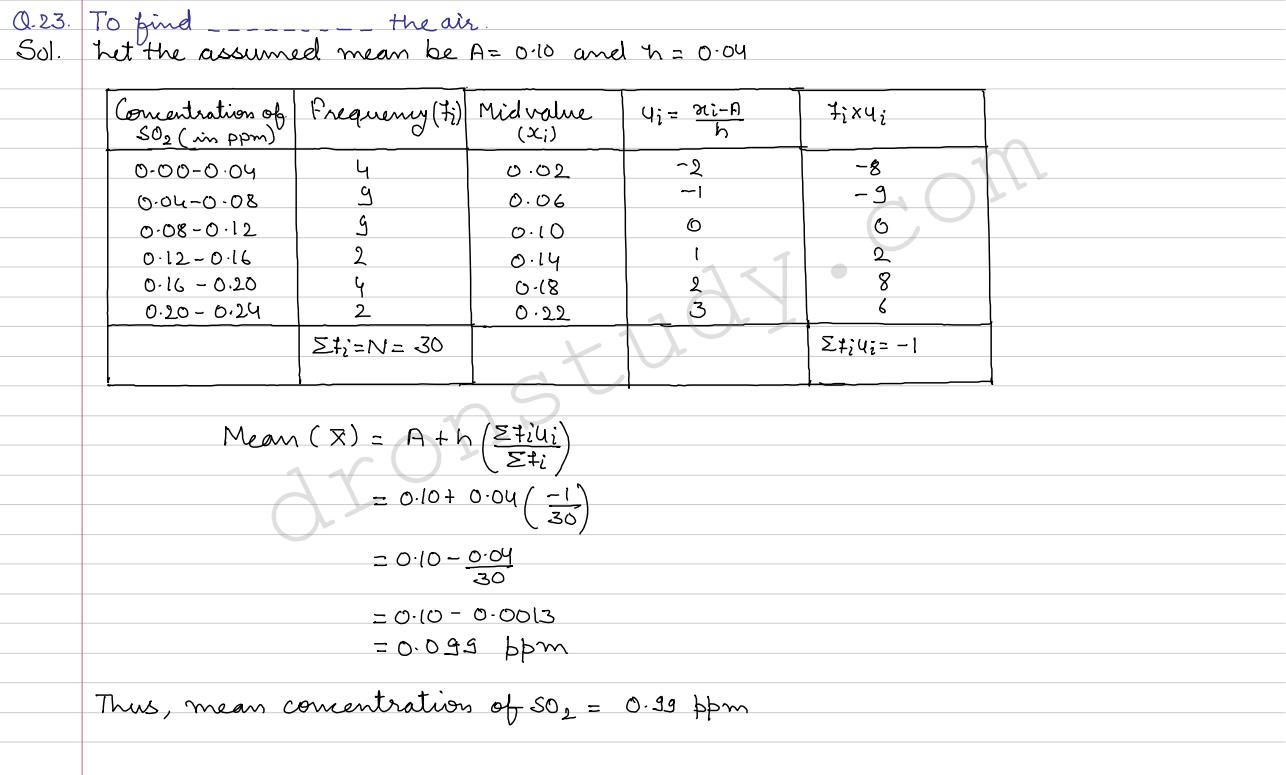 Q.23. To find _ _ _ _ _ _ _ _ _ the air.
Sol. Let the assumed mean be A = 0.10 and h = 0.04
Concentration of SO₂ (in ppm) Frequency (fi) Mid value (xi) ui = xi-A/h fi×ui
0.00-0.04 4 0.02 -2 -8
0.04-0.08 9 0.06 -1 -9
0.08-0.12 9 0.10 0 0
0.12-0.16 2 0.14 1 2
0.16-0.20 4 0.18 2 8
0.20-0.24 2 0.22 3 6
Σfi = N = 30 Σfiui = -1
Mean (x̄) = A + h (Σfiui/Σfi)
= 0.10 + 0.04 (-1/30)
= 0.10 - 0.04/30
= 0.10 - 0.0013
= 0.099 ppm
Thus, mean concentration of SO₂ = 0.99 ppm
dronstudy.com